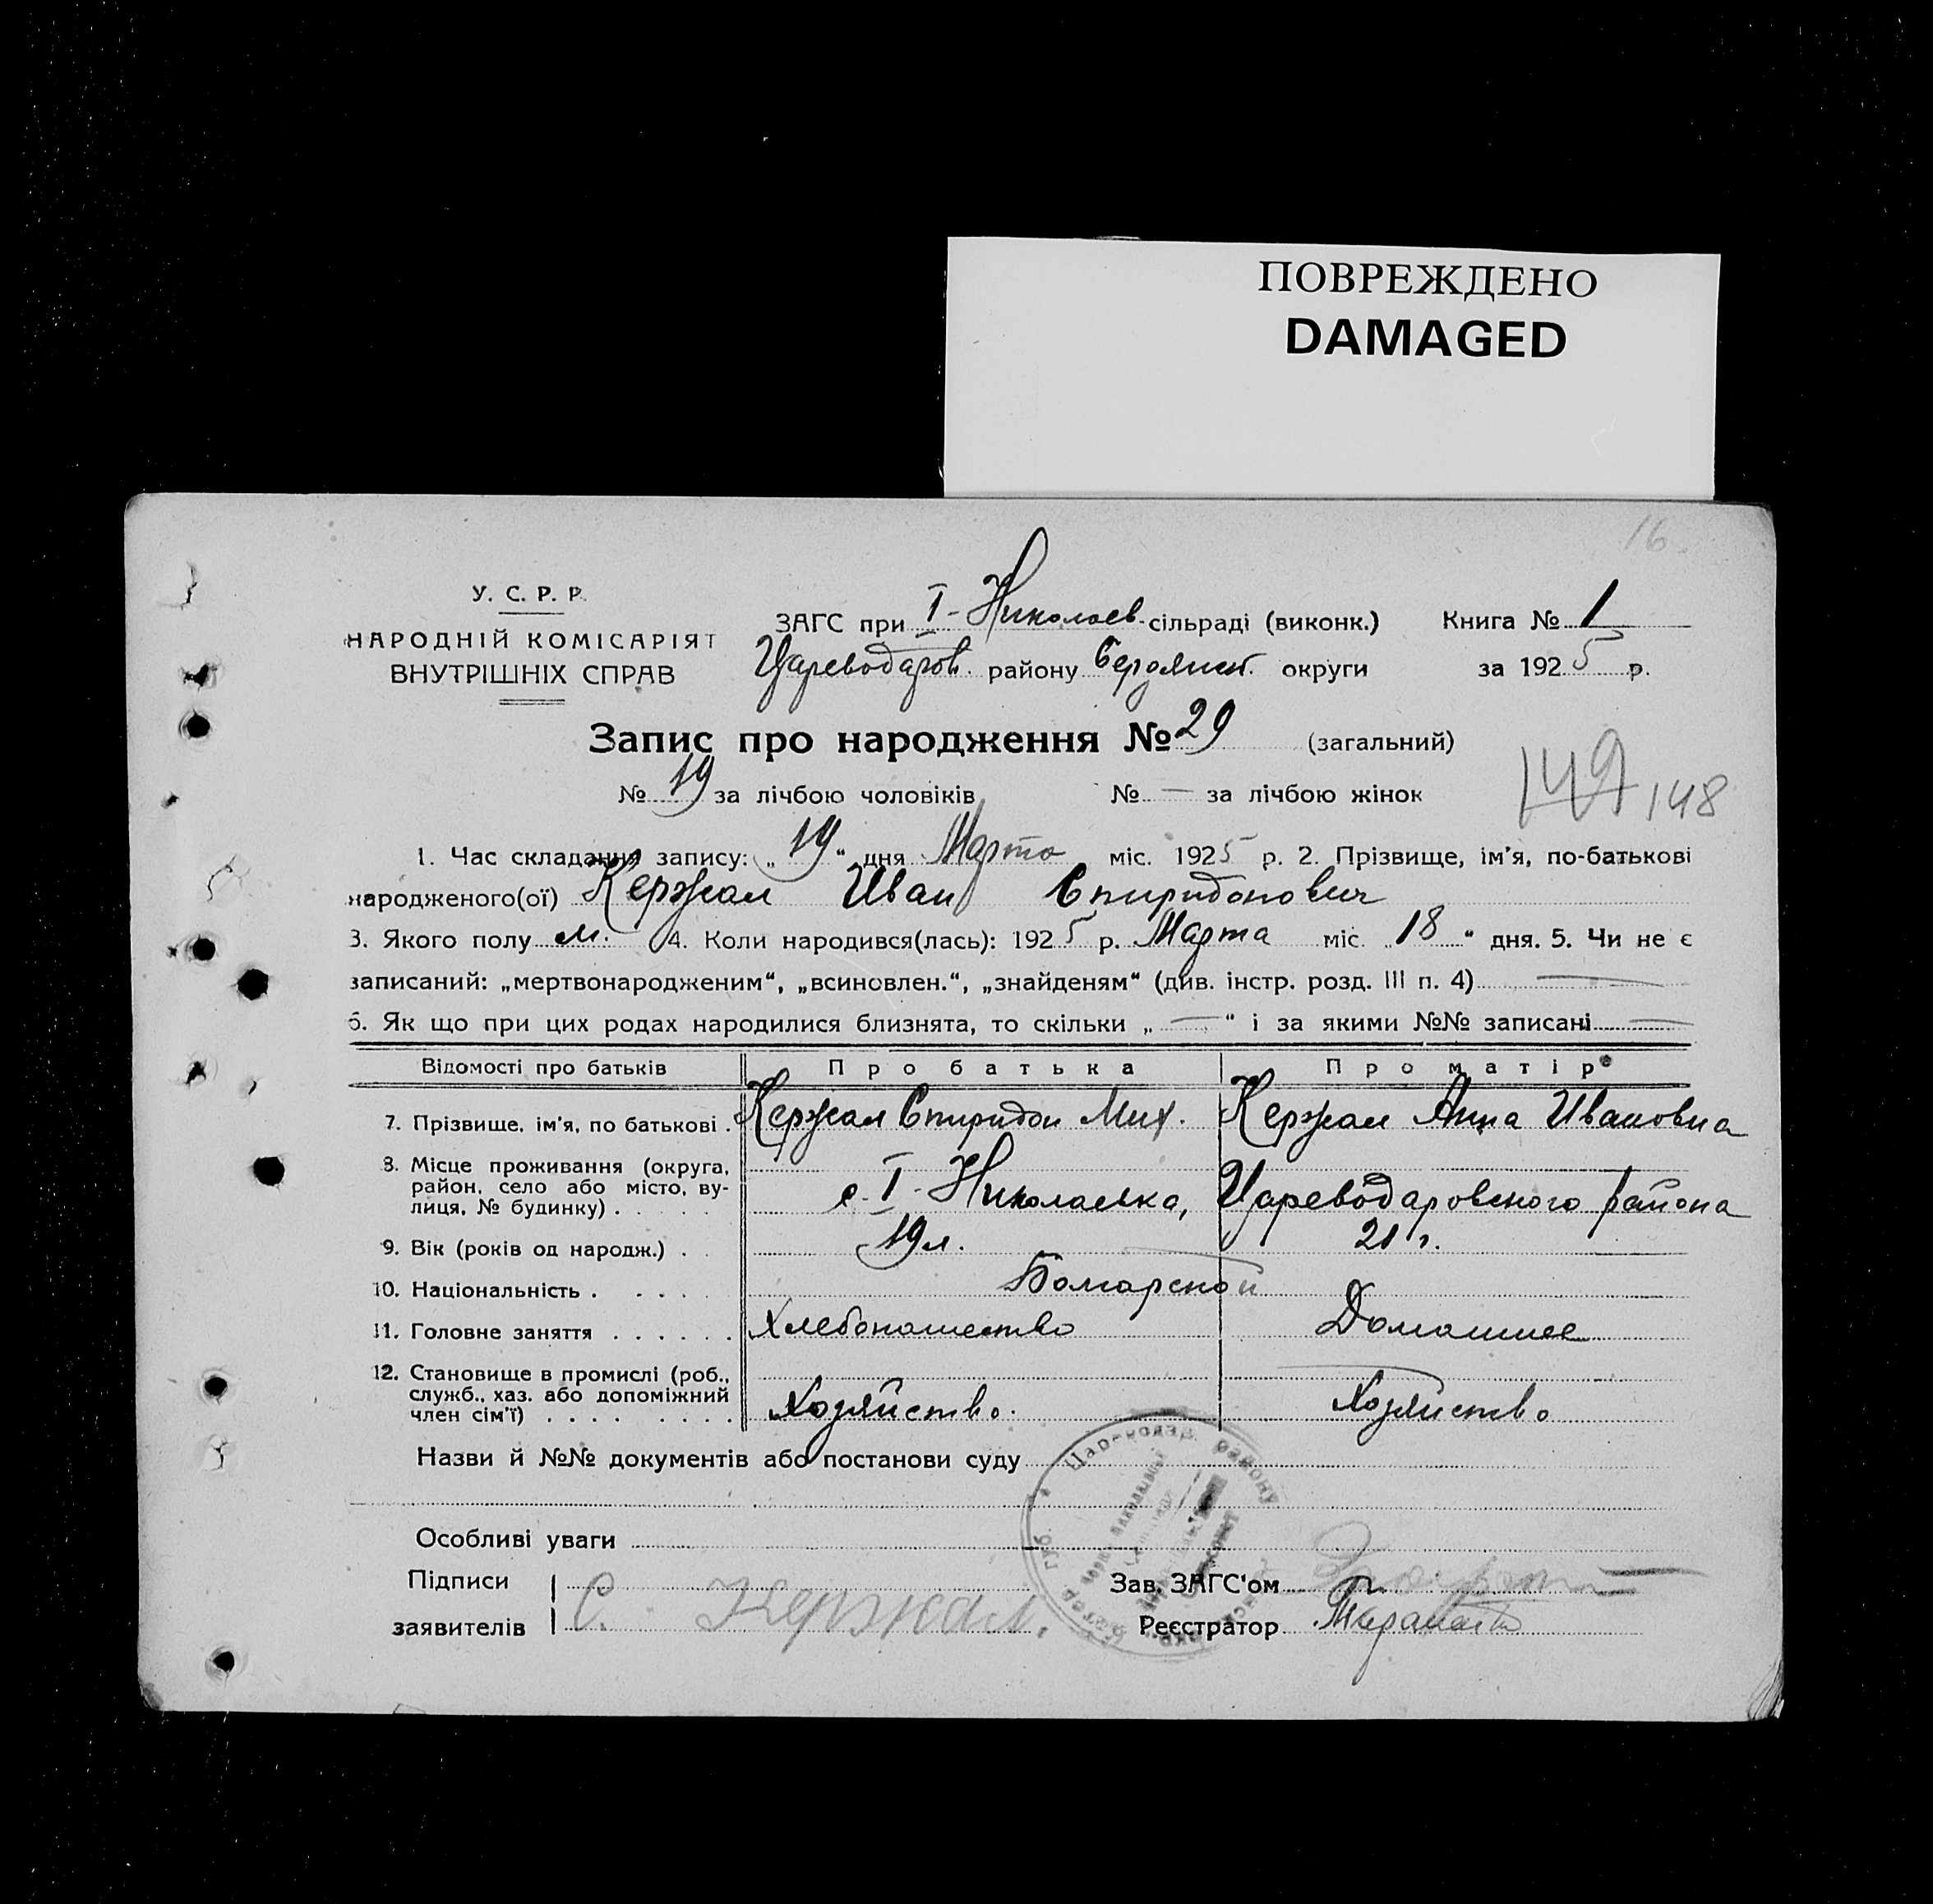 ПОВРЕЖДЕНО
DAMAGED
16
У. С. Р. Р.
НАРОДНІЙ КОМІСАРІЯТ
ВНУТРІШНІХ СПРАВ
ЗАГС при I-Николаев. сільраді (виконк.)
Цареводаров. району Бердянск. округи
Книга № 1
за 1925 р.
Запис про народження № 29 (загальний)
№ 19 за лічбою чоловіків № — за лічбою жінок
149 148
1. Час складання запису: „19“ дня Марта міс. 1925 р. 2. Прізвище, ім'я, по-батькові
народженого(ої) Кержал Иван Спиридонович
3. Якого полу м. 4. Коли народився(лась): 1925 р. Марта міс. „18“ дня. 5. Чи не є
записаний: „мертвонародженим“, „всиновлен.“, „знайденям“ (див. інстр. розд. III п. 4) —
6. Як що при цих родах народилися близнята, то скільки „—“ і за якими №№ записані —
Відомості про батьків Про батька Про матір
7. Прізвище, ім'я, по батькові . Кержал Спиридон Мих. Кержал Анна Ивановна
8. Місце проживання (округа,
район, село або місто, ву-
лиця, № будинку) . . . . . с. I-Николаевка, Цареводаровского района
9. Вік (років од народж.) . . 19 л. 21 г.
10. Національність . . . . . Болгарской
11. Головне заняття . . . . . . Хлебопашество Домашнее
12. Становище в промислі (роб.,
служб., хаз. або допоміжний
член сім'ї) . . . . . . . . Хозяйство. Хозяйство
Назви й №№ документів або постанови суду
Цареводар. району
Особливі уваги
Підписи
заявителів С. Кержал.
Зав. ЗАГС'ом
Реєстратор